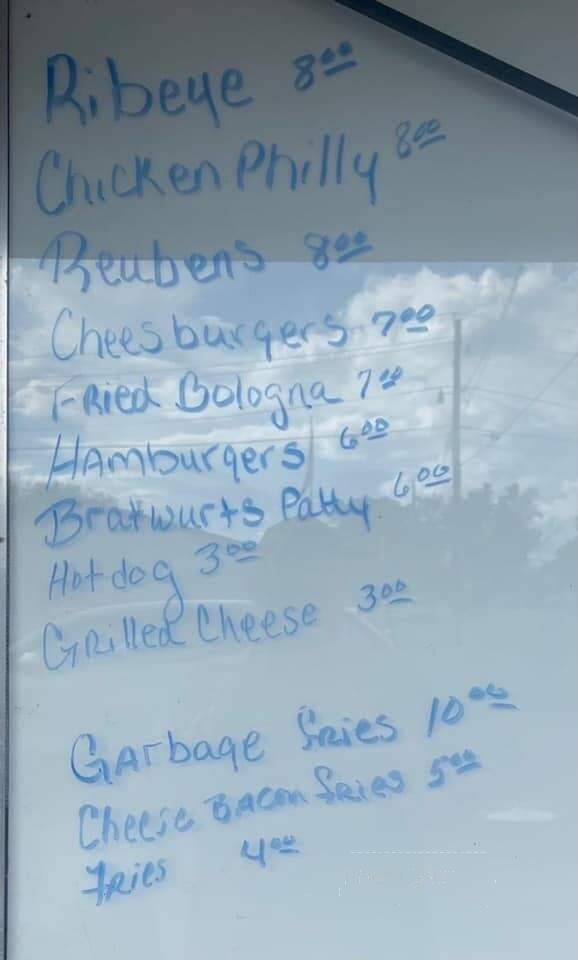 Ribeye 8.00
Chicken Philly 8.00
Reubens 8.00
Cheesburgers 7.00
Fried Bologna 7.00
Hamburgers 6.00
Bratwurts Patty 6.00
Hotdog 3.00
Grilled Cheese 3.00
Garbage fries 10.00
Cheese Bacon fries 5.00
Fries 4.00